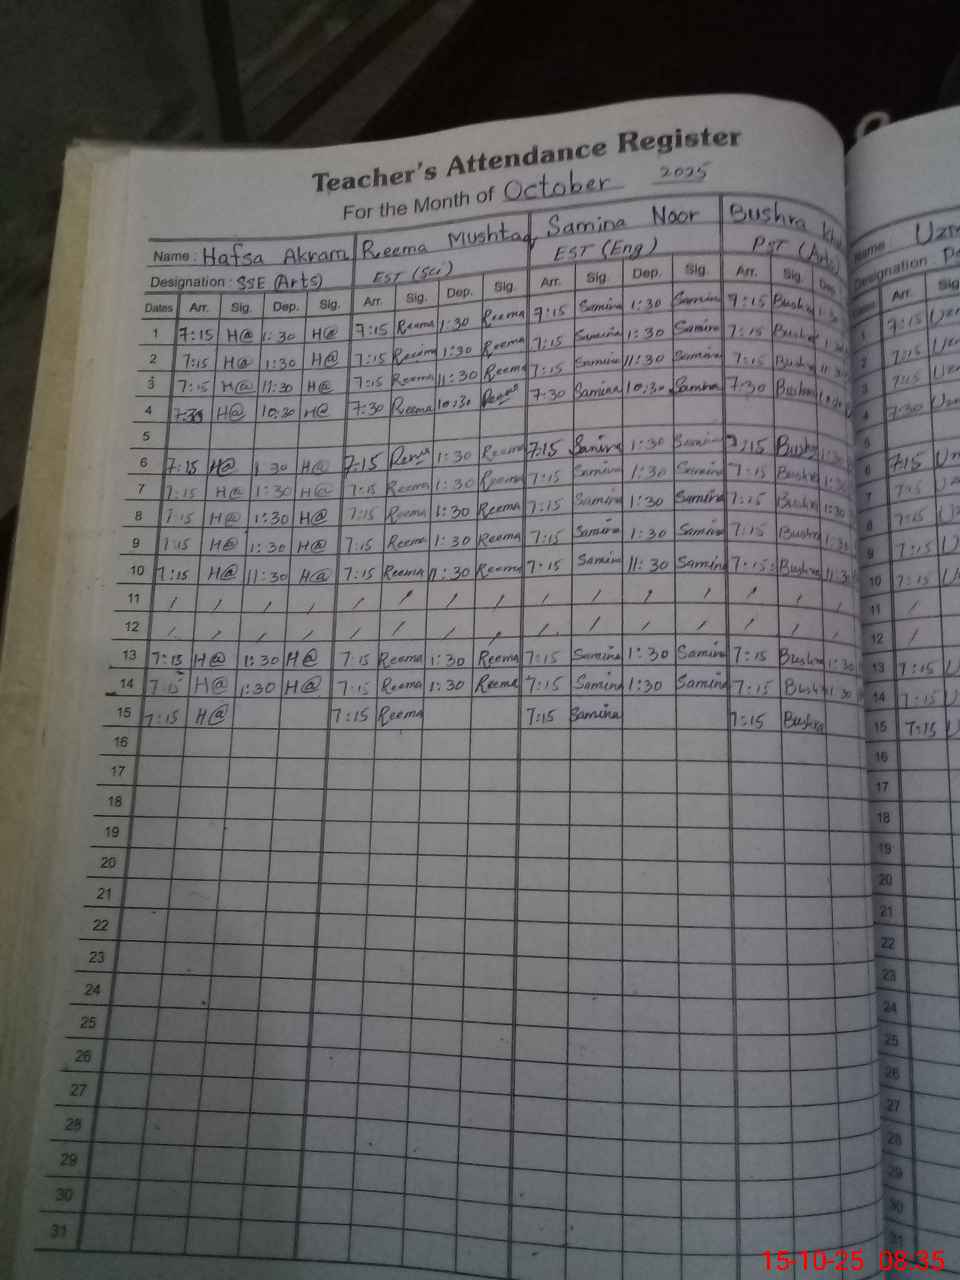 Teacher's Attendance Register
For the Month of October 2025
Name : Hafsa Akram Reema Mushtaq Samina Noor Bushra Name Uz
Designation : SSE (Arts) EST (Sci) EST (Eng) PST (Arts) Designation :
Dates Arr. Sig. Dep. Sig. Arr. Sig. Dep. Sig. Arr. Sig. Dep. Sig. Arr. Sig. Dep. Arr. Sig
1 7:15 H@ 1:30 H@ 7:15 Reema 1:30 Reema 7:15 Samina 1:30 Samina 7:15 Bushra 1:30 1 7:15
2 7:15 H@ 1:30 H@ 7:15 Reema 1:30 Reema 7:15 Samina 1:30 Samina 7:15 Bushra 1:30 2 7:15
3 7:15 H@ 11:30 H@ 7:15 Reema 11:30 Reema 7:15 Samina 11:30 Samina 7:15 Bushra 11:30 3 7:15
4 7:30 H@ 10:30 H@ 7:30 Reema 10:30 Reema 7:30 Samina 10:30 Samina 7:30 Bushra 10:30 4 7:30
5 5
6 7:15 H@ 1:30 H@ 7:15 Reema 1:30 Reema 7:15 Samina 1:30 Samina 7:15 Bushra 1:30 6 7:15
7 7:15 H@ 1:30 H@ 7:15 Reema 1:30 Reema 7:15 Samina 1:30 Samina 7:15 Bushra 1:30 7 7:15
8 7:15 H@ 1:30 H@ 7:15 Reema 1:30 Reema 7:15 Samina 1:30 Samina 7:15 Bushra 1:30 8 7:15
9 7:15 H@ 1:30 H@ 7:15 Reema 1:30 Reema 7:15 Samina 1:30 Samina 7:15 Bushra 1:30 9 7:15
10 7:15 H@ 11:30 H@ 7:15 Reema 11:30 Reema 7:15 Samina 11:30 Samina 7:15 Bushra 11:30 10 7:15
11 / / / / / / / / / / / / / / / 11 /
12 / / / / / / / / / / / / / / / 12 /
13 7:15 H@ 1:30 H@ 7:15 Reema 1:30 Reema 7:15 Samina 1:30 Samina 7:15 Bushra 1:30 13 7:15
14 7:15 H@ 1:30 H@ 7:15 Reema 1:30 Reema 7:15 Samina 1:30 Samina 7:15 Bushra 1:30 14 7:15
15 7:15 H@ 7:15 Reema 7:15 Samina 7:15 Bushra 15 7:15
16 16
17 17
18 18
19 19
20 20
21 21
22 22
23 23
24 24
25 25
26 26
27 27
28 28
29 29
30 30
31 31
15-10-25 08:35